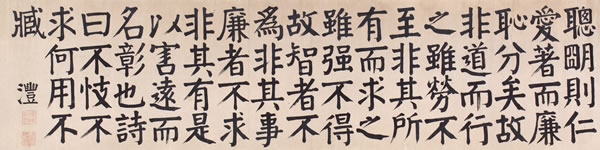 聰明則仁
愛著而廉
恥分矣故
非道而行
之雖勞不
至非其所
有而求之
雖强不得
故智者不
為非其事
廉者不求
非其有是
以害遠而
名彰也詩
曰不忮不
求何用不
臧
灃